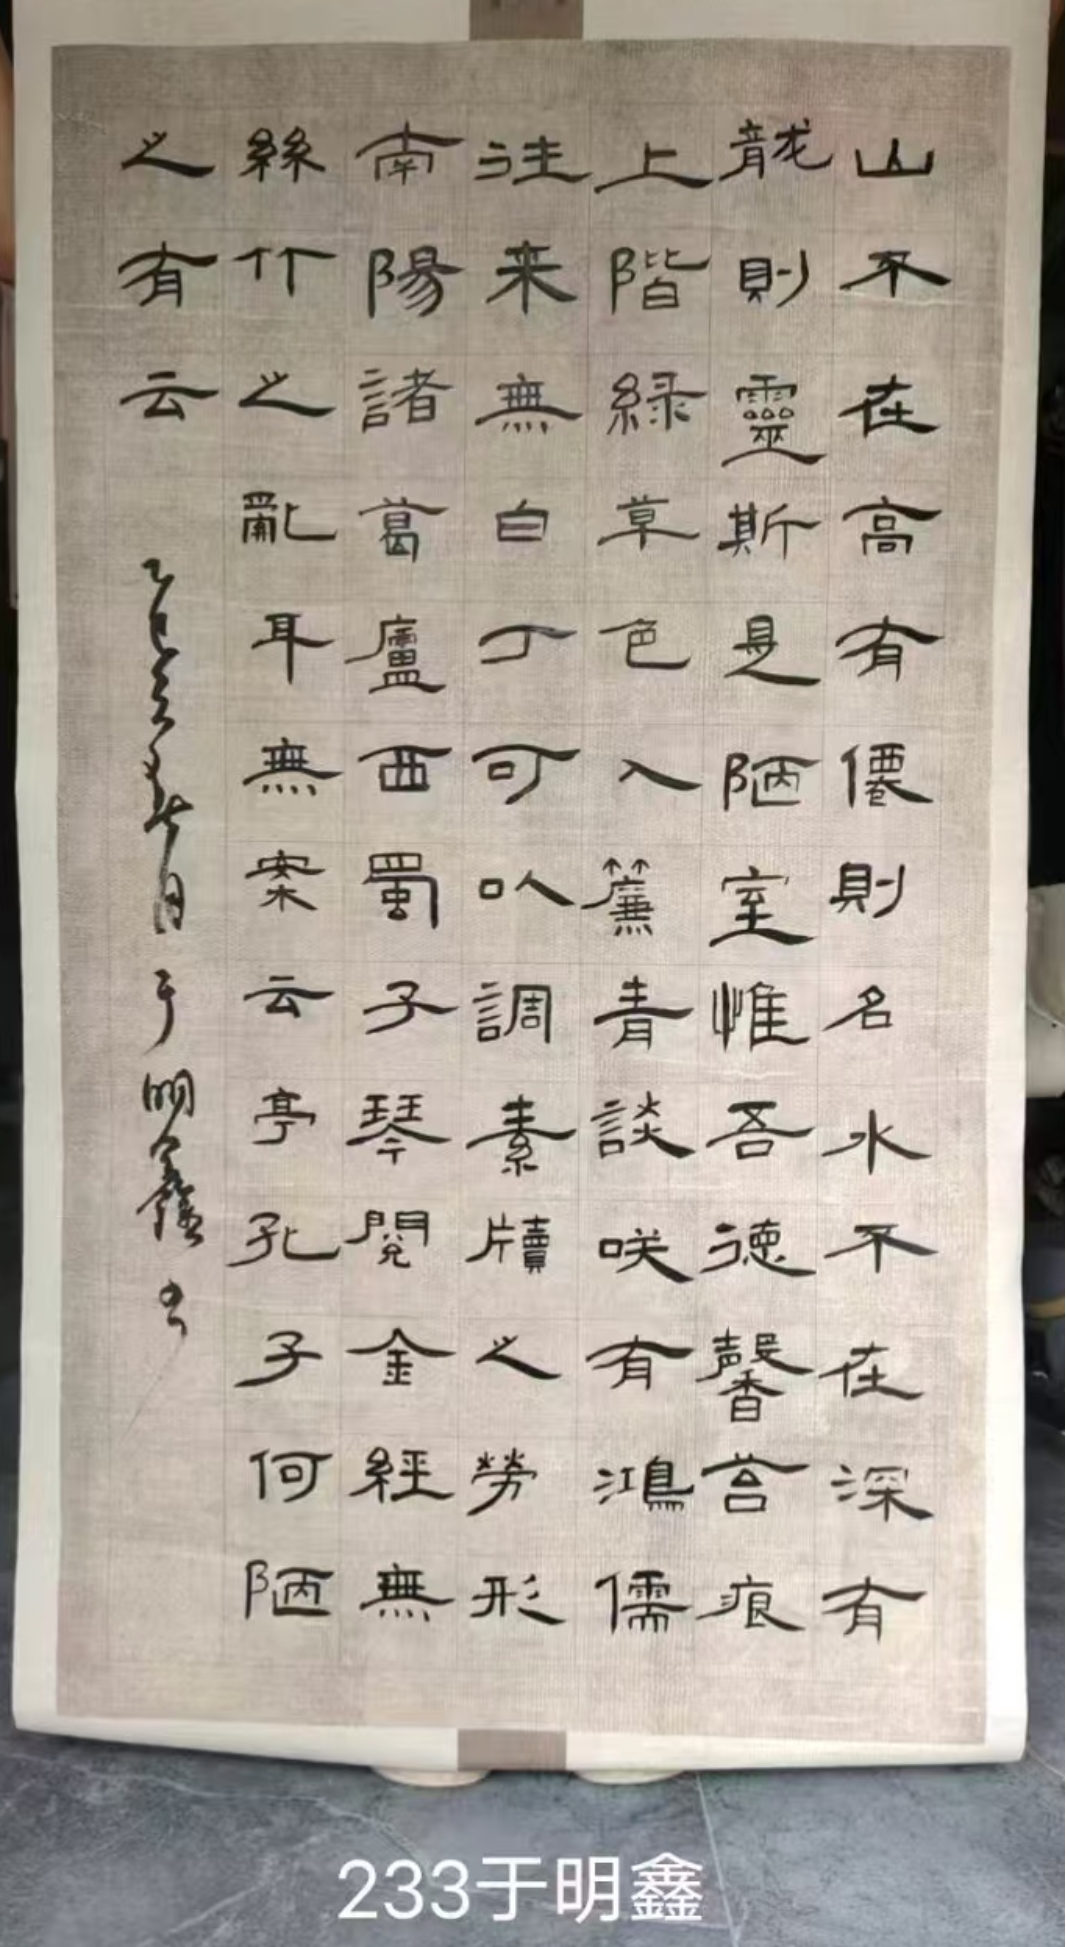 山不在高有僊則名水不在深有
龍則靈斯是陋室惟吾徳馨苔痕
上階緑草色入簾青談咲有鴻儒
往来無白丁可以調素牘之勞形
南陽諸葛廬西蜀子琴閱金經無
絲竹之亂耳無案云亭孔子何陋
之有云
乙巳月于明鑫书
233于明鑫